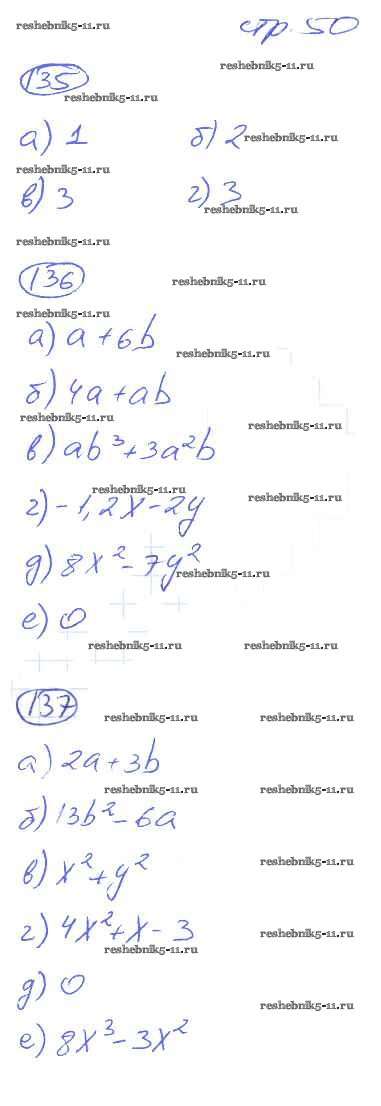 reshebnik5-11.ru стр. 50
reshebnik5-11.ru
135
reshebnik5-11.ru
а) 1 б) 2 reshebnik5-11.ru
reshebnik5-11.ru
в) 3 г) 3
reshebnik5-11.ru
reshebnik5-11.ru
136 reshebnik5-11.ru
reshebnik5-11.ru
а) a + 6b
reshebnik5-11.ru
б) 4a + ab
reshebnik5-11.ru reshebnik5-11.ru
в) ab³ + 3a²b
reshebnik5-11.ru reshebnik5-11.ru
г) -1,2x - 2y
д) 8x² - 7y²
reshebnik5-11.ru
е) 0
reshebnik5-11.ru reshebnik5-11.ru
137 reshebnik5-11.ru reshebnik5-11.ru
а) 2a + 3b
reshebnik5-11.ru reshebnik5-11.ru
б) 13b² - 6a
в) x² + y² reshebnik5-11.ru
г) 4x² + x - 3 reshebnik5-11.ru
reshebnik5-11.ru
д) 0
reshebnik5-11.ru
е) 8x³ - 3x²